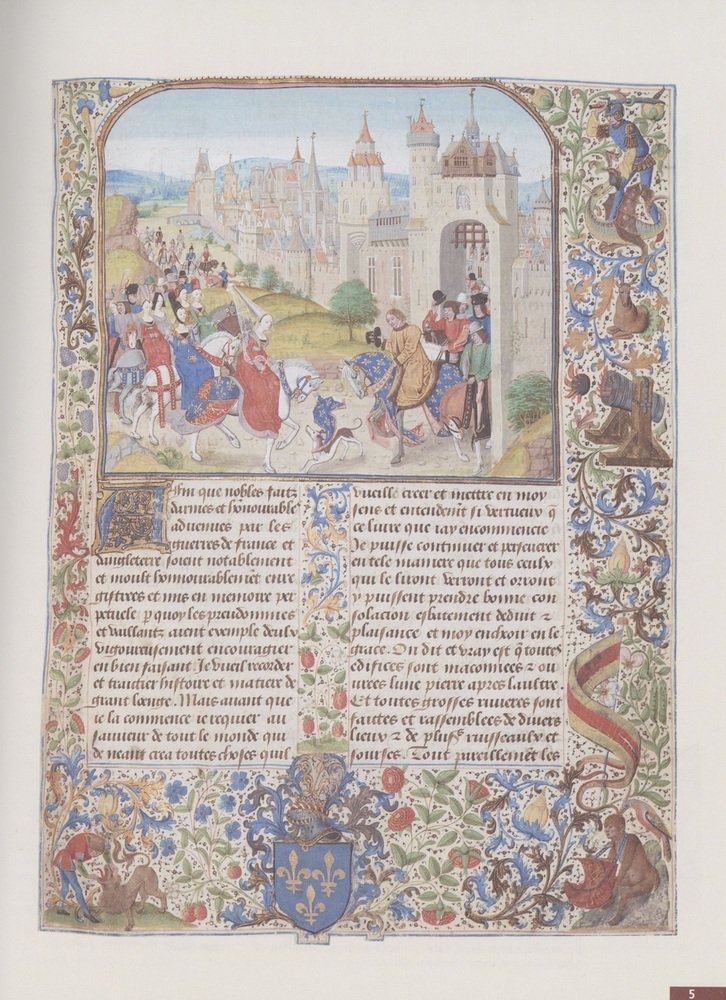 Afin que nobles faitz
darmes et honnourables
aduenues par les
guerres de france et
dangleterre soient notablement
et moult honnourablemēt enre
gistrees et mis en memoire per
petuele p quoy les preudommes
et vaillantz aient exemple deulx
vigoureusement encouragier
en bien faisant. Je vueil recorder
et traictier histoire et matiere de
grant loenge. Mais auant que
ie la commence ie requier au
sauueur de tout le monde qui
de neant crea toutes choses quil
vueille creer et mettre en moy
sens et entendemēt si vertueux q̄
ce liure que iay encommencie
Je puisse continuer et perseuerer
en tele maniere que tous ceulx
qui le liront verront et orront
y puissent prendre bonne con
solacion esbatement deduit ⁊
plaisance et moy encheoir en le
grace. On dit et vray est q̄ toutes
edifices sont maconnees ⁊ ou
urees lune pierre apres laultre.
Et toutes grosses riuieres sont
faites et rassemblees de diuers
lieux ⁊ de plusrs ruisseaulx et
sourses. Tout pareillemēt les
5